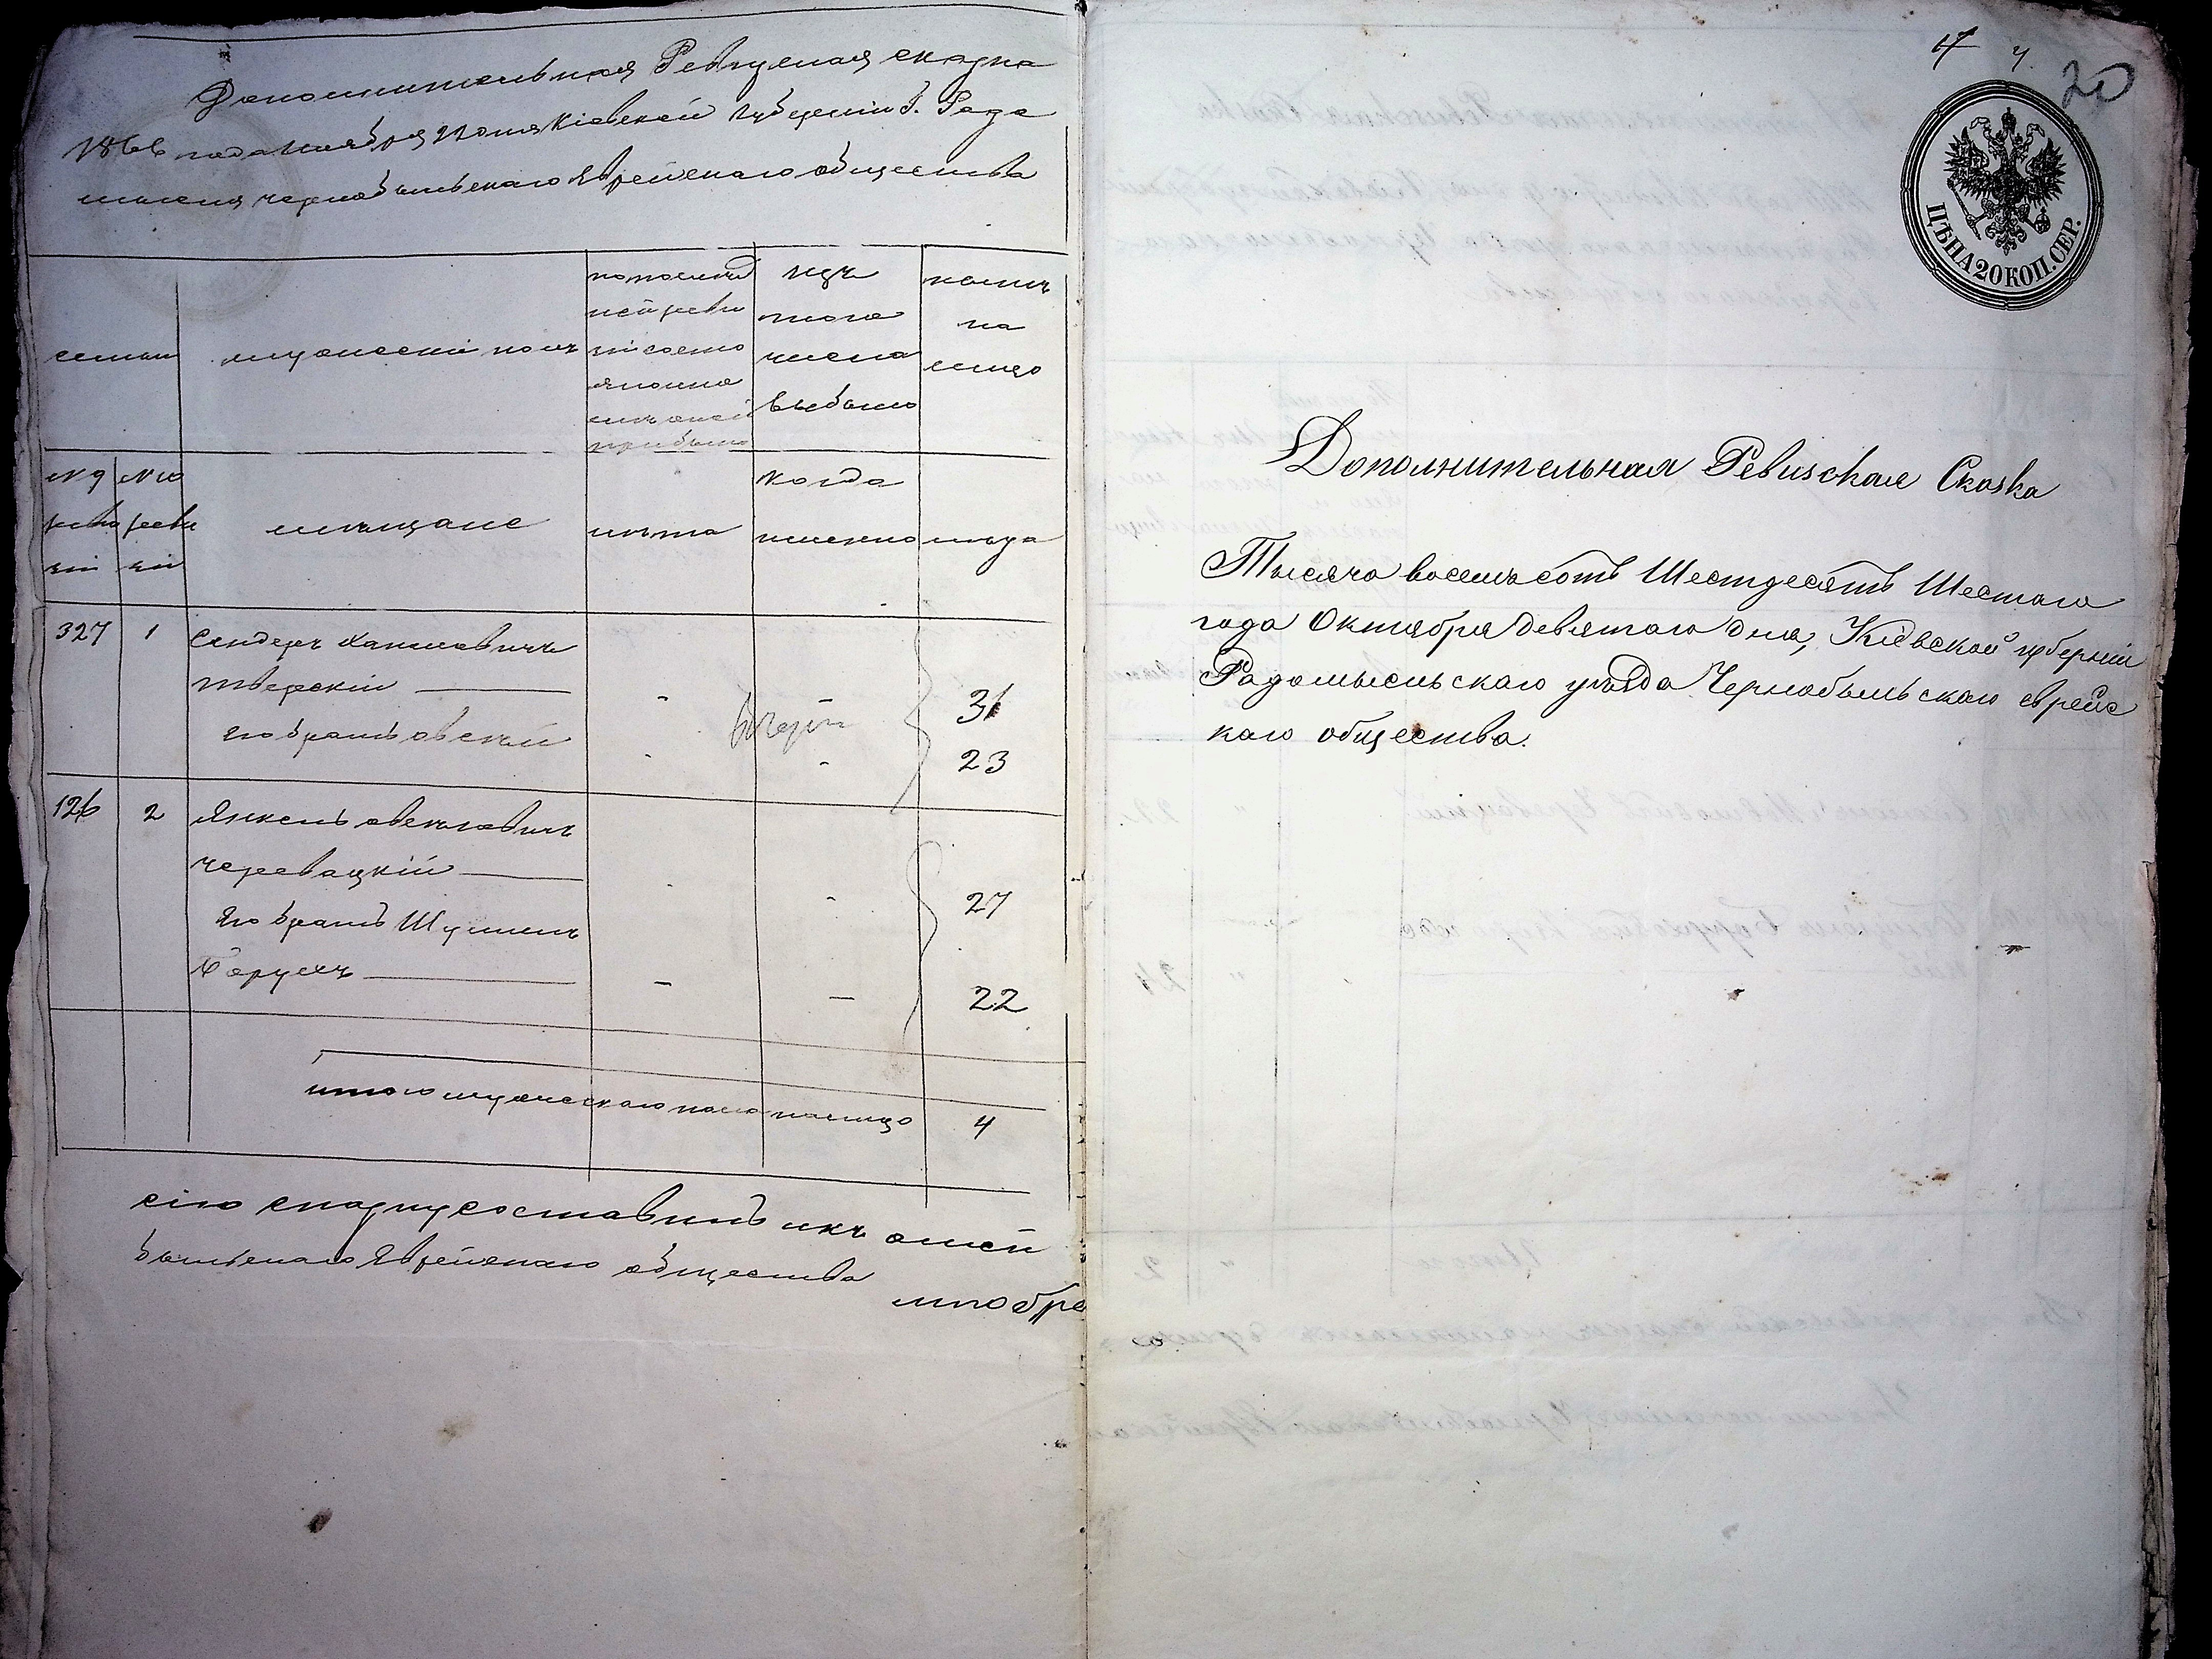 Дополнительная Ревизская сказка
1866 года Ноября 22 дня Кіевской губерніи г. Радо
мысля чернобыльскаго Еврейскаго общества
семьи
мужескій полъ
по послед
ней реви
зіи состо
яло и по
слѣ оной
прибыло
изъ
того
числа
выбыло
нынѣ
на
лицо
№ 9
реви
зіи
№ 10
реви
зіи
мѣщане
лѣта
когда
именно
лѣта
327 1 Сендеръ Хаимовичъ
тверскій - - 31
его братъ овсѣй - - 23
126 2 Янкель овсѣевичъ
черевацкій - - 27
Его братъ Шулимъ
Борухъ - - 22
итого мужескаго пола налицо 4
сію сказку составилъ
быльскаго Еврейскаго общества
4 4 20
ЦѢНА 20 КОП. СЕР.
Дополнительная Ревизская Сказка
Тысяча восемьсотъ Шестдесятъ Шестаго
года Октября девятаго дня, Кіевской губерніи
Радомысльскаго уѣзда Чернобыльскаго еврейс
каго общества.